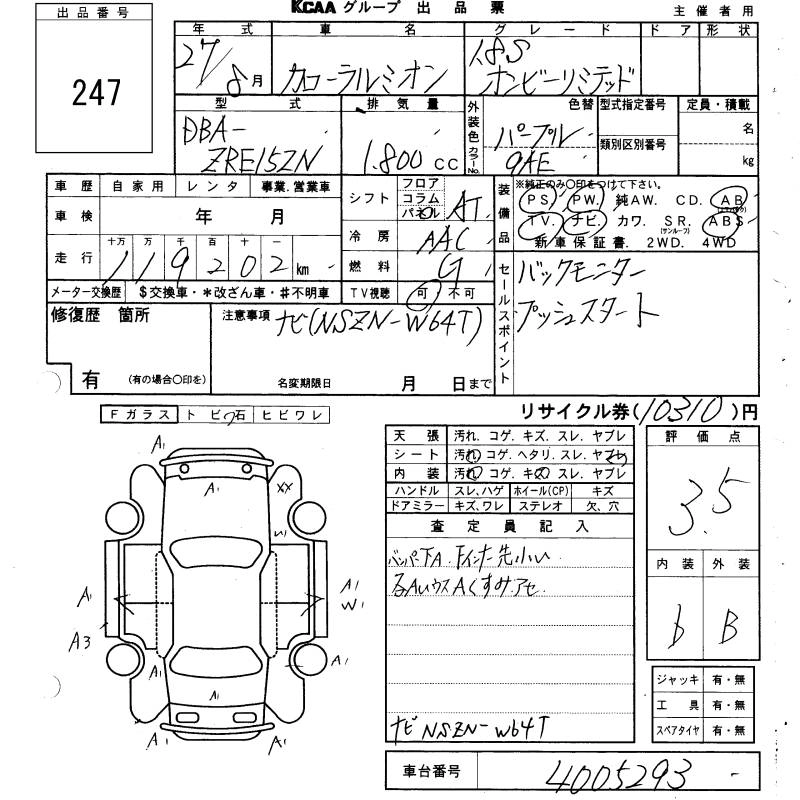 KCAA グループ 出品票
主催者用
出品番号
247
年式 車名 グレード ドア 形状
27/8月 カローラルミオン 1.8S オンビーリミテッド
型式 排気量 外装色 色替 型式指定番号 定員・積載
カラーNo.
DBA-ZRE152N 1.800 cc パープル 9AE 類別区別番号 名
kg
車歴 自家用 レンタ 事業.営業車
車検 年 月
走行 十万 万 千 百 十 一
119202 km
メーター交換歴 $交換車・*改ざん車・#不明車
シフト フロア コラム パネル AT
冷房 AAC
燃料 G
TV視聴 可 不可
装備品
※純正のみ○印をつけて下さい。
PS. PW. 純AW. CD. AB (エアバック)
TV. ナビ. カワ. SR. (サンルーフ) ABS
新車保証書. 2WD. 4WD
セールスポイント
バックモニター
プッシュスタート
修復歴 箇所
有 (有の場合○印を)
注意事項 ナビ(NSZN-W64T)
名変期限日 月 日まで
リサイクル券(10310)円
Fガラス トビ石 ヒビワレ
天張 汚れ. コゲ. キズ. スレ. ヤブレ
シート 汚れ. コゲ. ヘタリ. スレ. ヤブレ
内装 汚れ. コゲ. キズ. スレ. ヤブレ
ハンドル スレ,ハゲ ホイール(CP) キズ
ドアミラー キズ,ワレ ステレオ 欠、穴
査定員記入
バンパー下A Fインナー先小い
ナビ NSZN-W64T
評価点
3.5
内装 外装
b B
ジャッキ 有・無
工具 有・無
スペアタイヤ 有・無
車台番号 4005293
A1
A1
XX
W1
A1
A1
W1
A3
A1
A1
A1
A1
A1